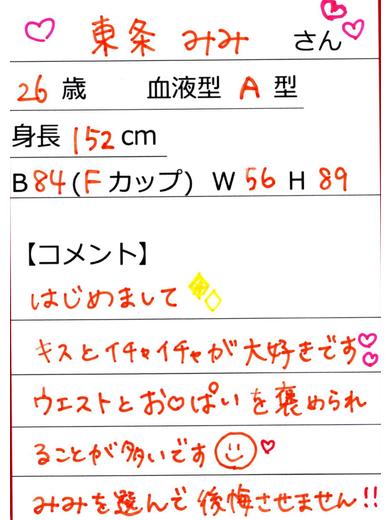 東条 みみ さん
26 歳 血液型 A 型
身長 152 cm
B 84 (F カップ) W 56 H 89
【コメント】
はじめまして
キスとイチャイチャが大好きです
ウエストとお○ぱいを褒められ
ることが多いです
みみを選んで後悔させません!!